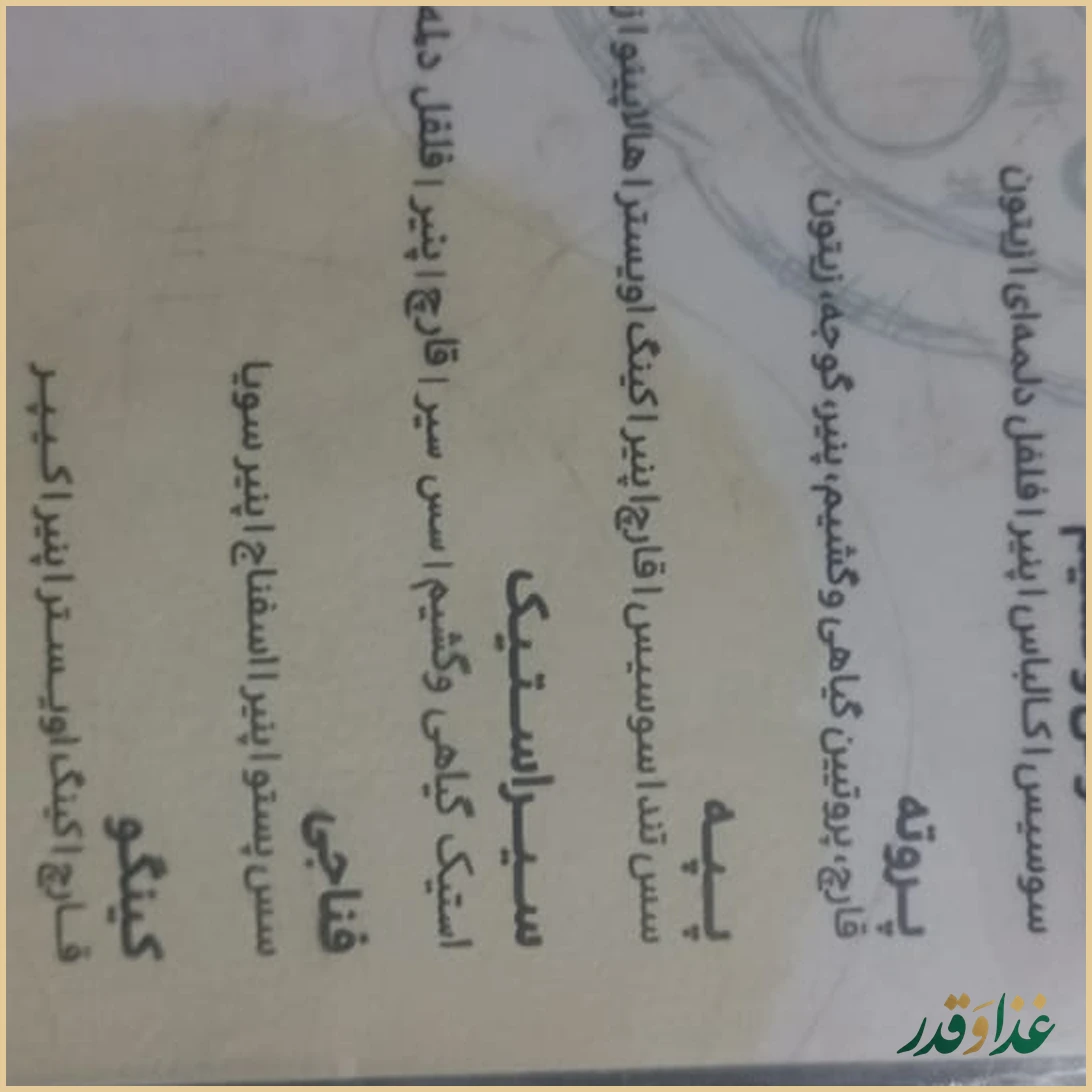 سوسیس | کالباس | پنیر | فلفل دلمه‌ای | زیتون
پروته
قارچ، پروتیین گیاهی وگشیم، پنیر، گوجه، زیتون
پپه
سس تند | سوسیس | قارچ | پنیر | کینگ اویستر | هالاپینو |
سیراستیک
استیک گیاهی وگشیم | سس سیر | قارچ | پنیر | فلفل دلمه
فناجی
سس پستو | پنیر | اسفناج | پنیر سویا
کینگو
قارچ | کینگ اویستر | پنیر | کیپر
غذا و قدر